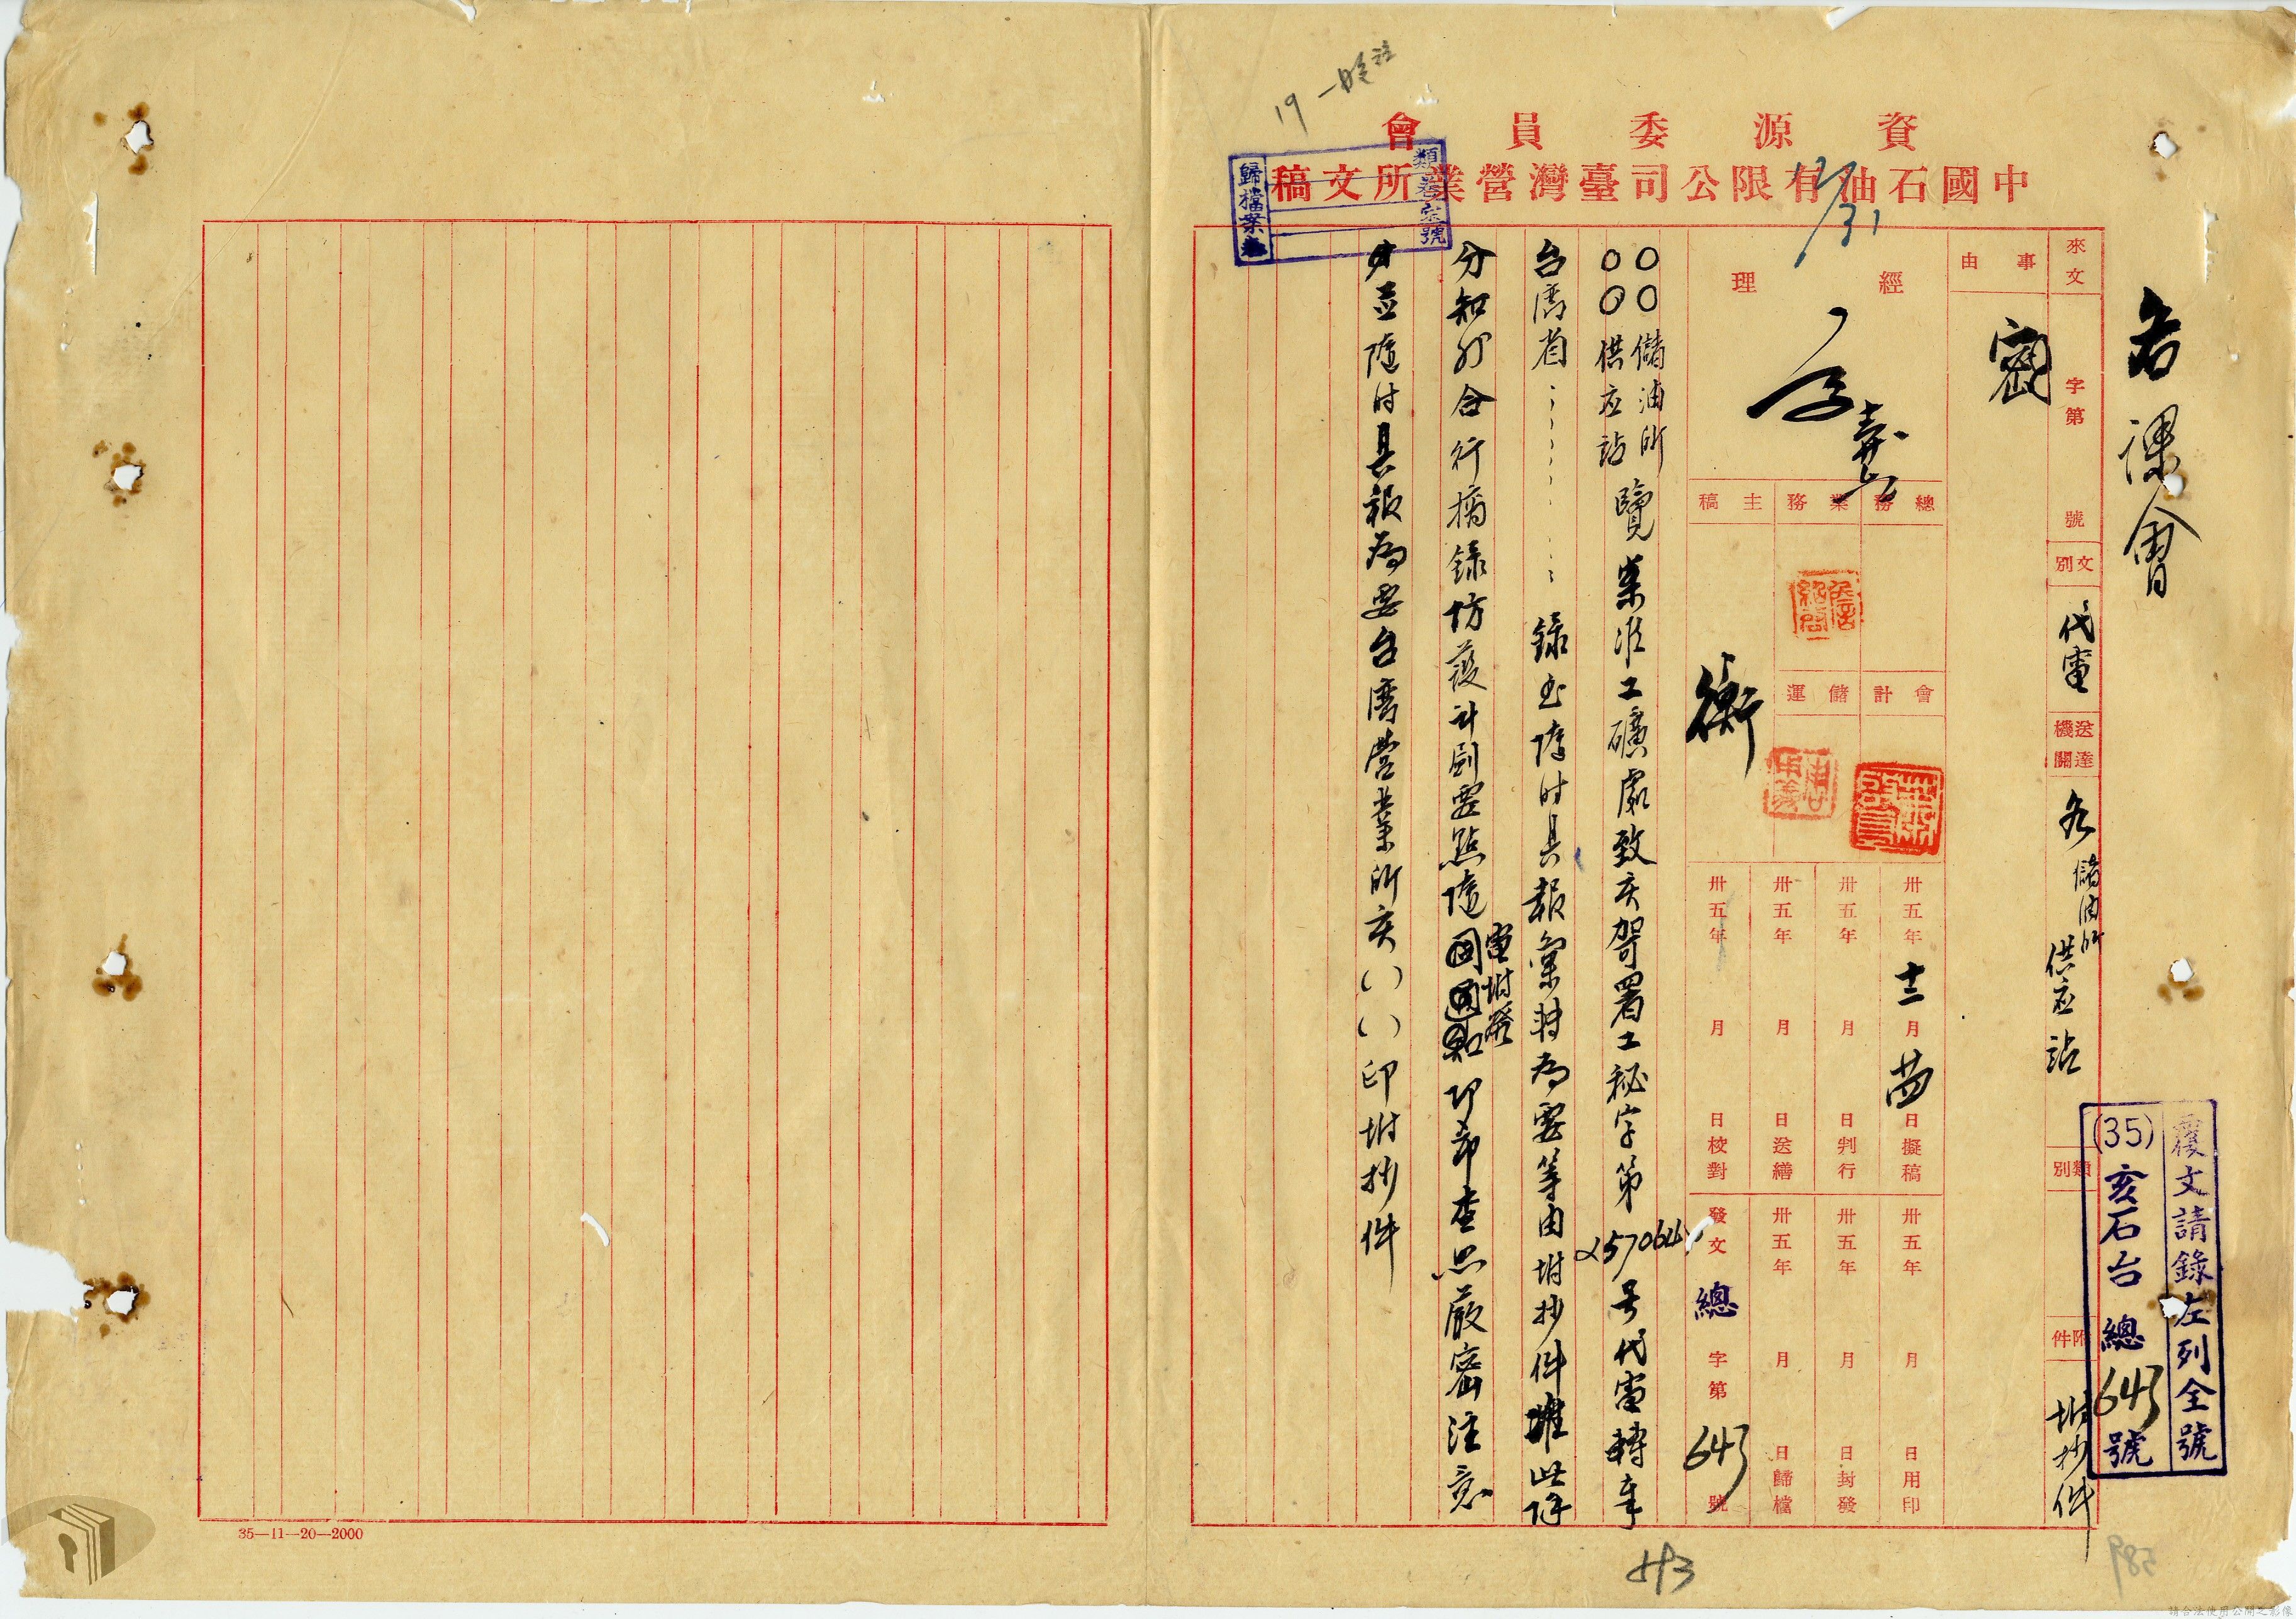 資源委員會
中國石油有限公司臺灣營業所文稿
12/31
類卷宗號
歸檔案
各課會
來文 字第 號
文別 代電
送達機關 各儲油所供应站
類別
附件 附抄件
覆文請錄左列全號
(35)亥石台總643號
事由
密
經理
總務 業務 主稿
會計 儲運
衡
卅五年十二月廿四日擬稿
卅五年 月 日判行
卅五年 月 日送繕
卅五年 月 日校對
卅五年 月 日用印
卅五年 月 日封發
卅五年 月 日歸檔
發文總字第643號
〇〇儲油所
〇〇供应站
覽案准工礦處致亥 署工秘字第257064号代電轉奉
台湾省………錄出隨时具報彙轉為要等由附抄件准此除
分知外合行摘錄防護計劃要點隨電附發即希查照嚴密注意
並隨时具報為要台湾營業所亥( )( )印附抄件
35—11—20—2000
請合法使用公開之影像